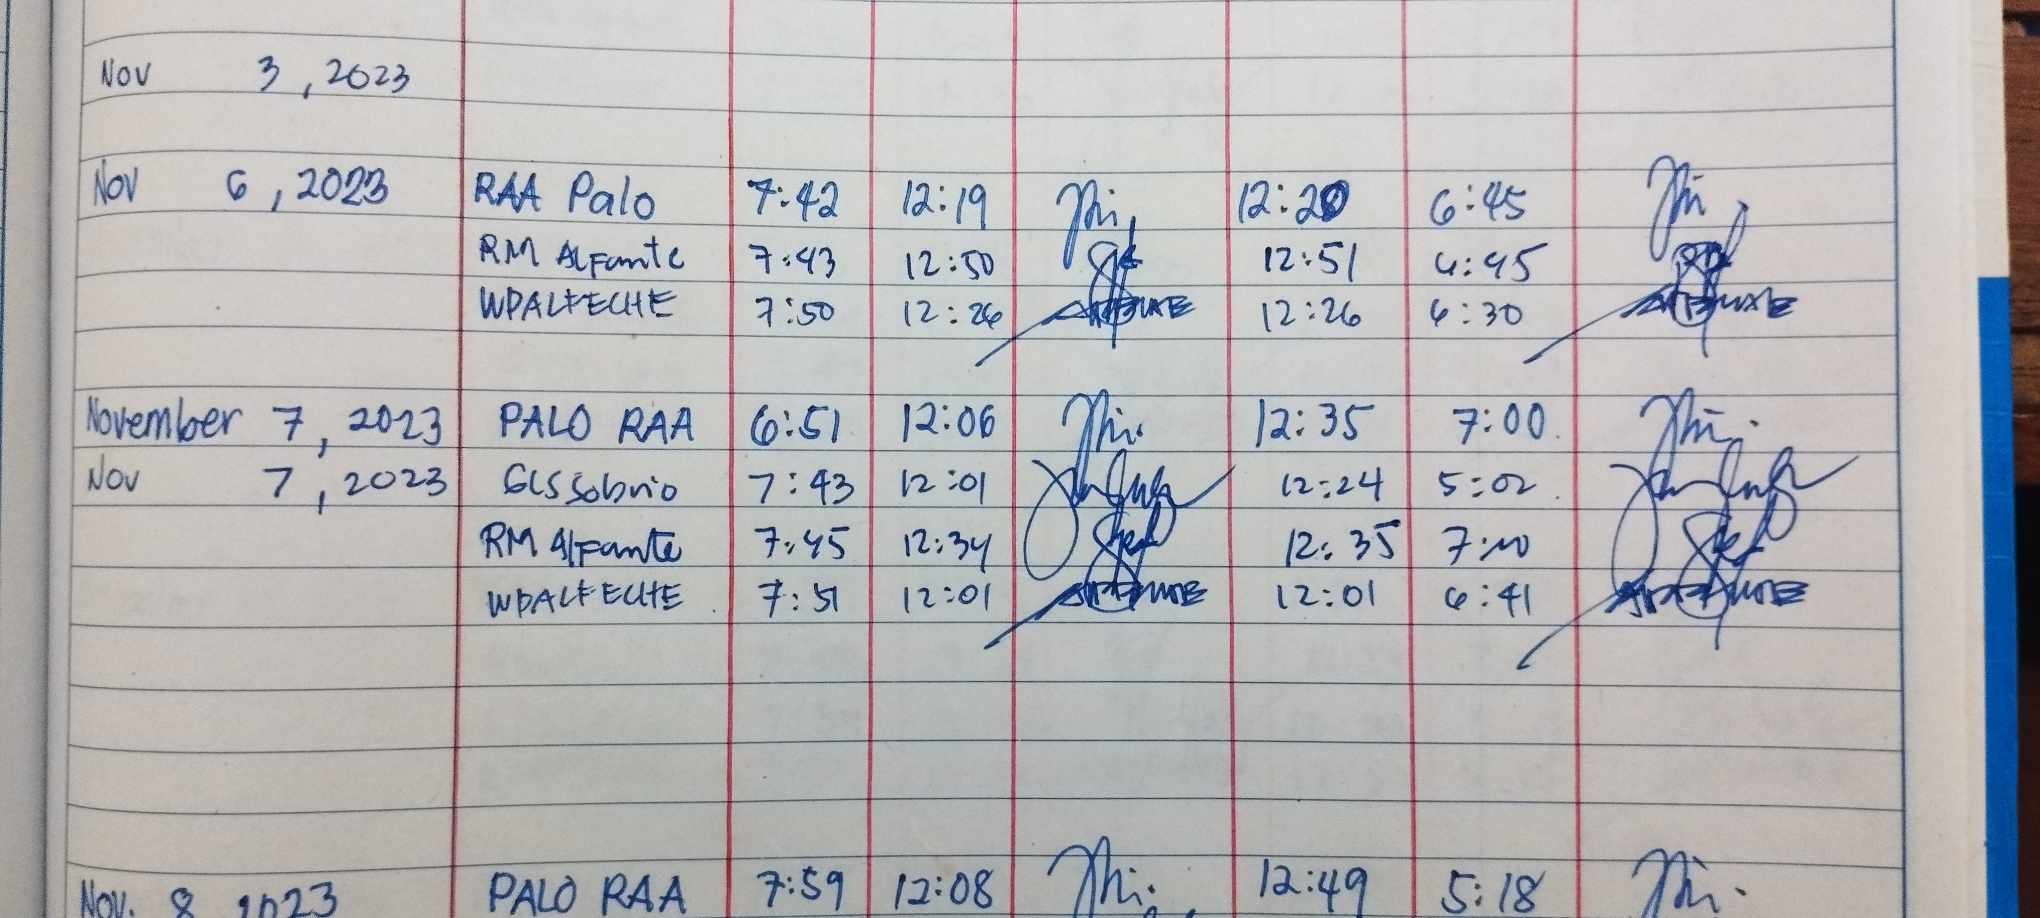 Nov 3, 2023
Nov 6, 2023 RAA Palo 7:42 12:19 12:20 6:45
RM Alfante 7:43 12:50 12:51 6:45
WPALFECHE 7:50 12:26 12:26 6:30
November 7, 2023 PALO RAA 6:51 12:06 12:35 7:00
Nov 7, 2023 GLSSobrio 7:43 12:01 12:24 5:02
RM Alfante 7:45 12:34 12:35 7:00
WPALFECHE 7:51 12:01 12:01 6:41
Nov. 8 2023 PALO RAA 7:59 12:08 12:49 5:18